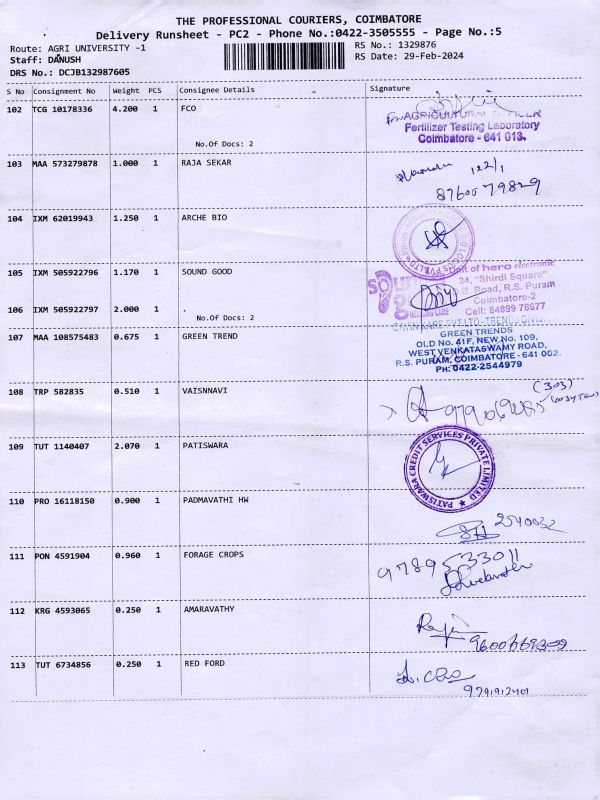 THE PROFESSIONAL COURIERS, COIMBATORE
Delivery Runsheet - PC2 - Phone No.:0422-3505555 - Page No.:5
Route: AGRI UNIVERSITY -1
RS No.: 1329876
Staff: DANUSH
RS Date: 29-Feb-2024
DRS No.: DCJB132987605
S No Consignment No Weight PCS Consignee Details Signature
102 TCG 10178336 4.200 1 FCO
AGRICULTURAL OFFICER
Fertilizer Testing Laboratory
Coimbatore - 641 013.
No.Of Docs: 2
103 MAA 573279878 1.000 1 RAJA SEKAR
122/1
8760079829
104 IXM 62019943 1.250 1 ARCHE BIO
105 IXM 505922796 1.170 1 SOUND GOOD
Unit of hero electronic
24, "Shirdi Square"
Road, R.S. Puram
Coimbatore-2
Cell: 84899 78677
106 IXM 505922797 2.000 1
No.Of Docs: 2
107 MAA 108575483 0.675 1 GREEN TREND
GREEN TRENDS
OLD No. 41F, NEW No. 109,
WEST VENKATASWAMY ROAD,
R.S. PURAM, COIMBATORE - 641 002.
PH: 0422-2544979
108 TRP 582835 0.510 1 VAISNNAVI
(303)
109 TUT 1140407 2.070 1 PATISWARA
PATISWARA CREDIT SERVICES PRIVATE LIMITED
110 PRO 16118150 0.900 1 PADMAVATHI HW
2540032
111 PON 4591904 0.960 1 FORAGE CROPS
9789533011
112 KRG 4593065 0.250 1 AMARAVATHY
113 TUT 6734856 0.250 1 RED FORD